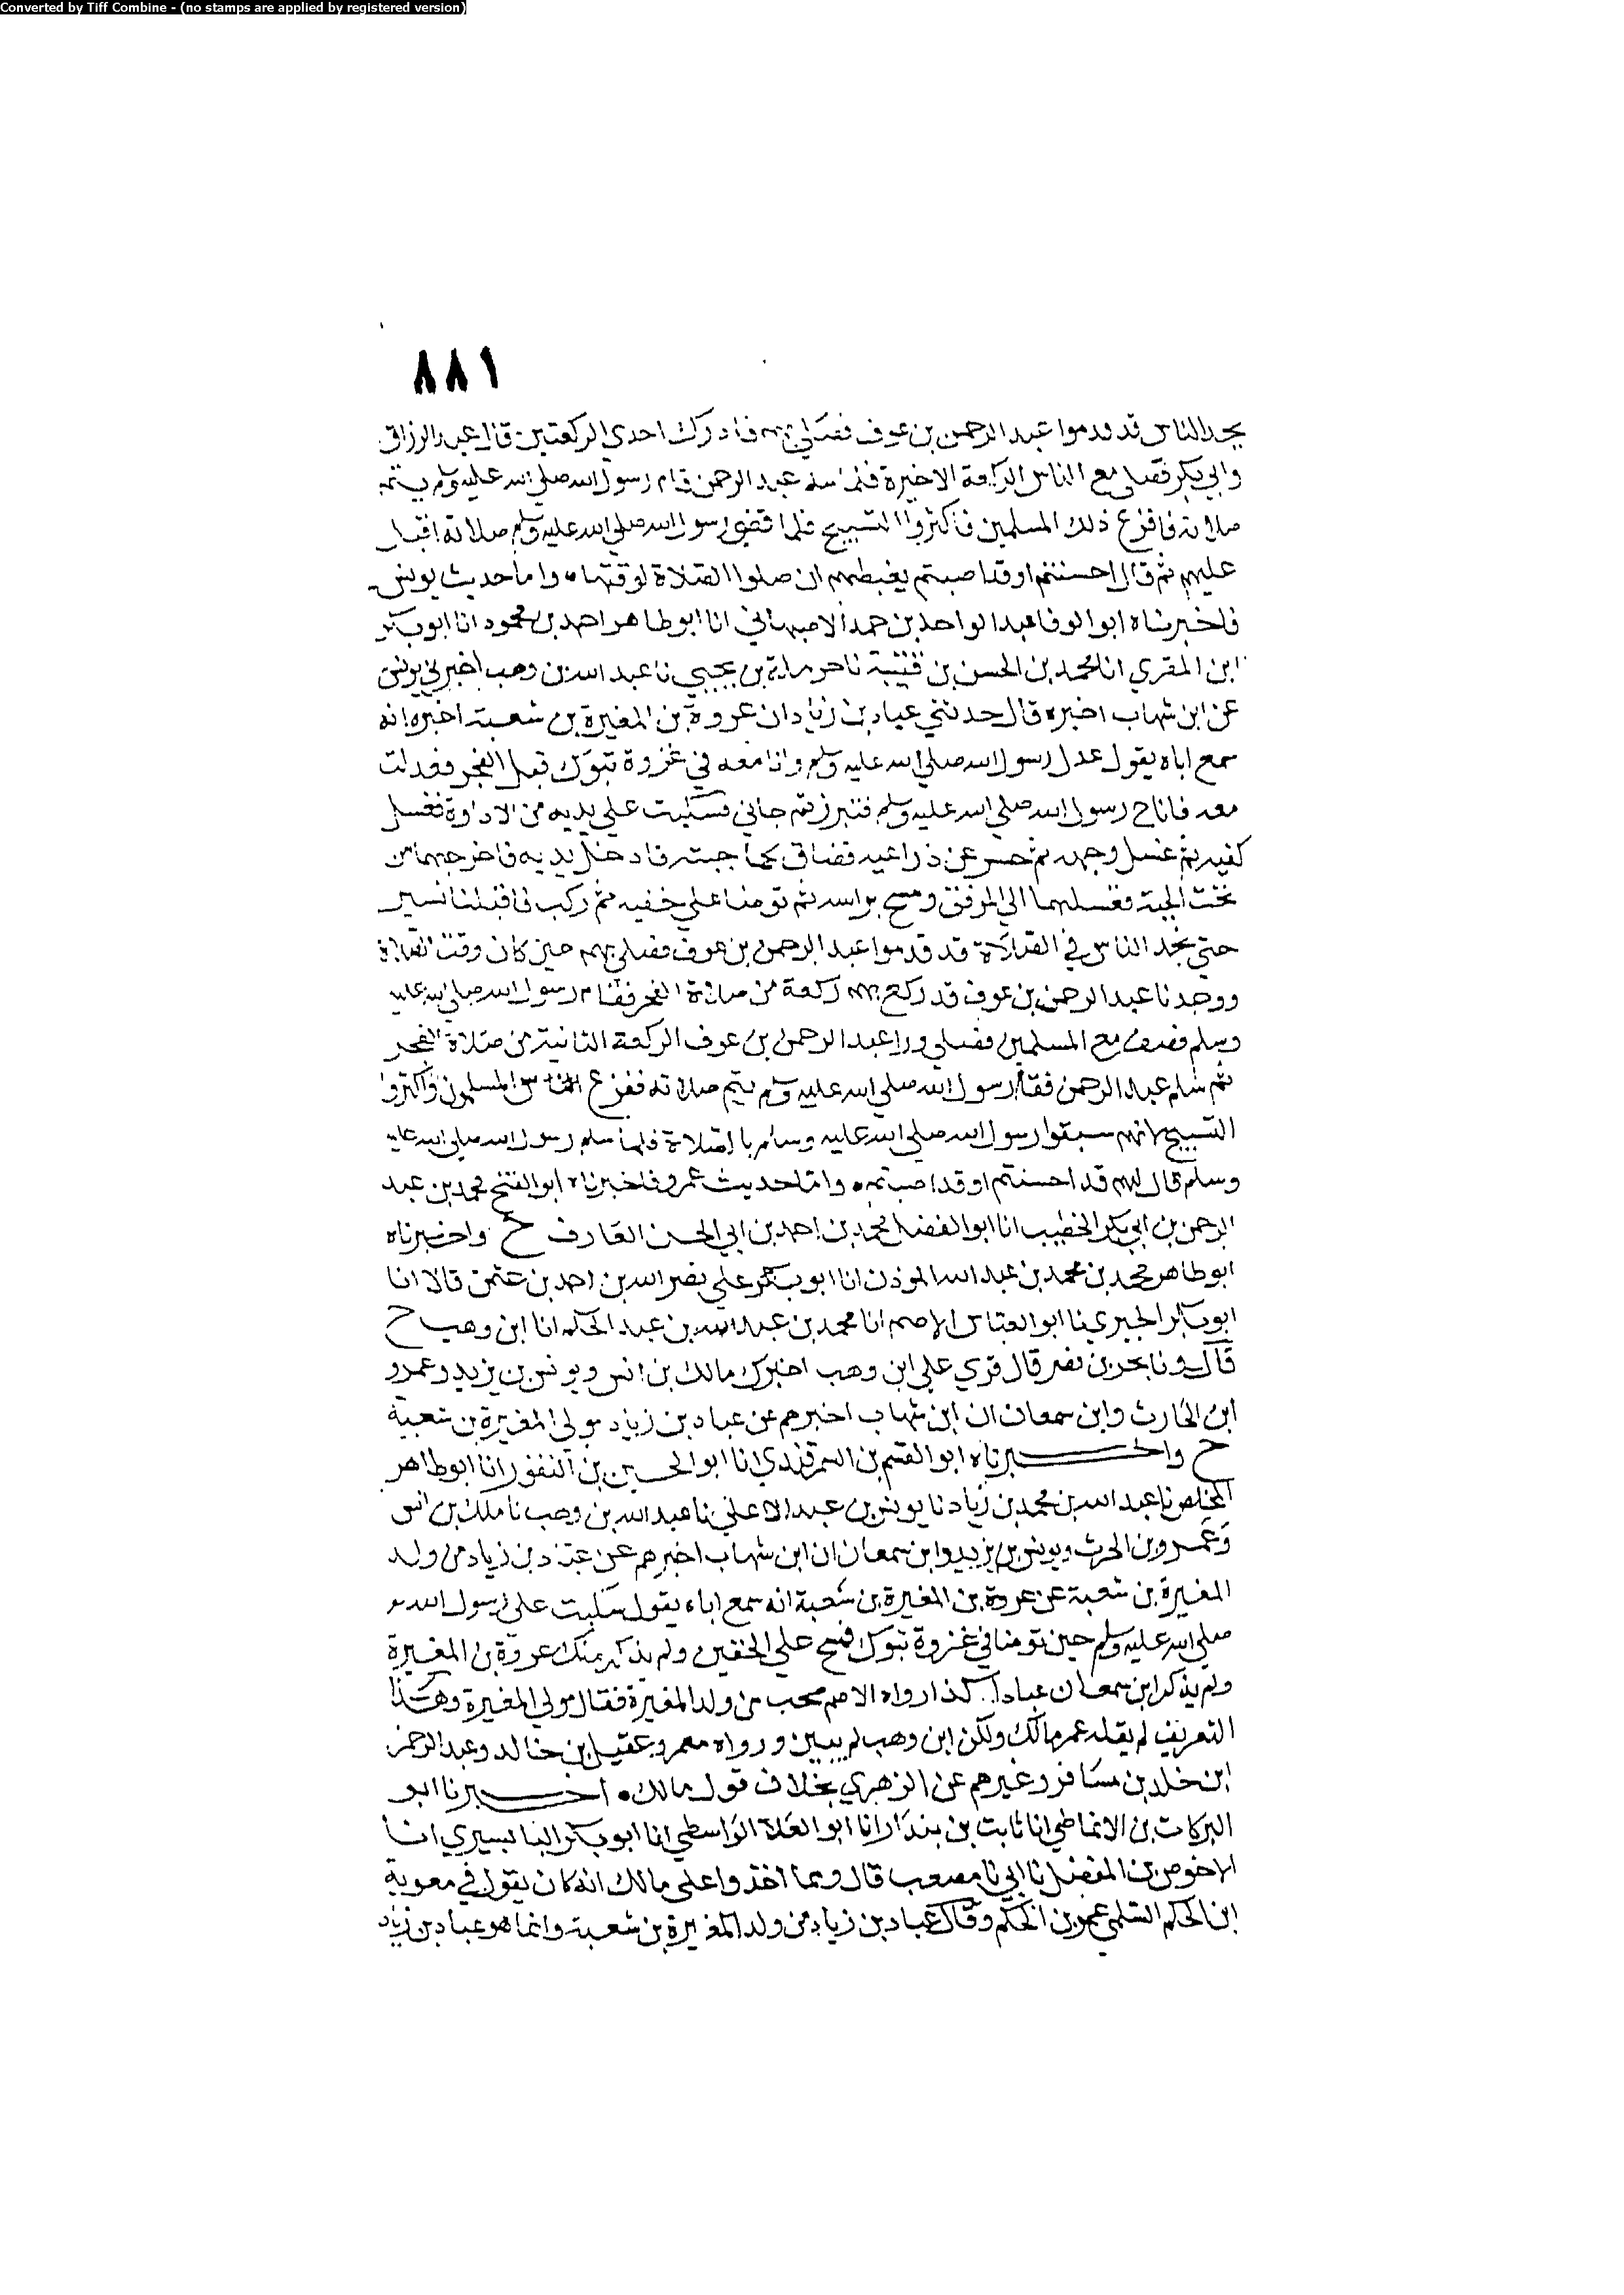 Converted by Tiff Combine - (no stamps are applied by registered version)
٨٨١
يجد الناس قد قدموا عبد الرحمن بن عوف فصلى بهم فادرك احدي الركعتين قال عبد الرزاق
وابي بكر فصلى مع الناس الركعة الاخيرة فلما سلم عبد الرحمن قام رسول الله صلي الله عليه وسلم يتم
صلاته فافزع ذلك المسلمين فاكثروا التسبيح فلما قضى رسول الله صلي الله عليه وسلم صلاته اقبل
عليهم ثم قال احسنتم او قد اصبتم يغبطهم ان صلوا الصلاة لوقتها، واما حديث يونس
فاخبرناه ابو الوفا عبد الواحد بن حمد الاصبهاني انا ابو طاهر احمد بن محمود انا ابو بكر
ابن المقري انا محمد بن الحسن بن قتيبة نا حرملة بن يحيي نا عبد الله بن وهب اخبرني يونس
عن ابن شهاب اخبره قال حدثني عباد بن زياد ان عروة بن المغيرة بن شعبة اخبره انه
سمع اباه يقول عدل رسول الله صلي الله عليه وسلم وانا معه في غزوة تبوك قبل الفجر فعدلت
معه فاناخ رسول الله صلي الله عليه وسلم فتبرز ثم جاني فسكبت علي يديه من الاداوة فغسل
كفيه ثم غسل وجهه ثم حسر عن ذراعيه فضاق كما جبته فادخل يديه فاخرجهما من
تحت الجبة فغسلهما الي المرفق ومسح براسه ثم توضا علي خفيه ثم ركب فاقبلنا نسير
حتي نجد الناس في الصلاة قد قدموا عبد الرحمن بن عوف فصلي بهم حين كان وقت الصلاة
ووجدنا عبد الرحمن بن عوف قد ركع بهم ركعة من صلاة الفجر فقام رسول الله صلي الله عليه
وسلم فصف مع المسلمين فصلي ورا عبد الرحمن بن عوف الركعة الثانية من صلاة الفجر
ثم سلم عبد الرحمن فقام رسول الله صلي الله عليه وسلم يتم صلاته ففزع المسلمون واكثروا
التسبيح لانهم سبقوا رسول الله صلي الله عليه وسلم بالصلاة فلما سلم رسول الله صلي الله عليه
وسلم قال لهم قد احسنتم او قد اصبتم، واما حديث عمرو فاخبرناه ابو الفتح محمد بن عبد
الرحمن بن ابي بكر الخطيب انا ابو الفضل محمد بن احمد بن ابي الحسن العارف ح واخبرناه
ابو طاهر محمد بن محمد بن عبد الله الموذن انا ابو بكر علي نصر الله بن احمد بن عثمن قالا انا
ابو بكر الحيري نا ابو العباس الاصم انا محمد بن عبد الله بن عبد الحكم انا ابن وهب ح
قال ونا بحر بن نصر قال قري علي ابن وهب اخبرك مالك بن انس ويونس بن يزيد وعمرو
ابن الحارث وابن سمعان ان ابن شهاب اخبرهم عن عباد بن زياد مولي المغيرة بن شعبة
ح واخبرناه ابو القسم بن السمرقندي انا ابو الحسين بن النقور انا ابو طاهر
المخلص نا عبد الله بن محمد بن زياد نا يونس بن عبد الاعلي نا عبد الله بن وهب نا ملك بن انس
وعمرو بن الحرث ويونس بن يزيد وابن سمعان ان ابن شهاب اخبرهم عن عباد بن زياد من ولد
المغيرة بن شعبة عن عروة بن المغيرة بن شعبة انه سمع اباه يقول سكبت علي رسول الله
صلي الله عليه وسلم حين توضا في غزوة تبوك فمسح علي الخفين ولم يذكر عروة بن المغيرة
ولم يذكر ابن سمعان عبادا. كذا رواه الاصم من ولد المغيرة فقال مولي المغيرة وهكذا
التعريف لم يقله مالك ولكن ابن وهب لم يبين ورواه معمر وعقيل بن خالد وعبد الرحمن
ابن خلد بن مسافر وغيرهم عن الزهري بخلاف قول مالك، اخبرنا ابو
البركات بن الانماطي انا ثابت بن بندار انا ابو العلاء الواسطي انا ابو بكر البابسيري انا
الاحوص بن المفضل نا ابي نا مصعب قال ومما اخذوا علي مالك انه كان يقول في معوية
ابن الحكم السلمي عمر بن الحكم وقال عباد بن زياد من ولد المغيرة بن شعبة وانما هو عباد بن زياد